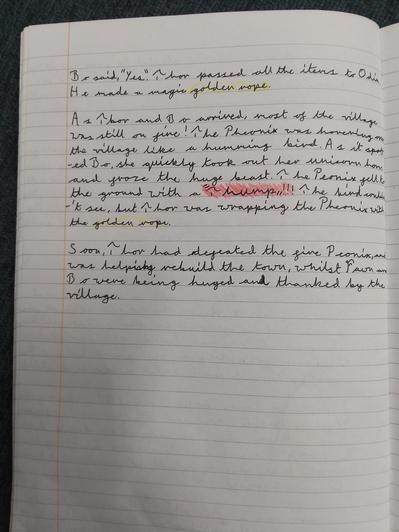 Bo said, "Yes". Thor passed all the items to Odin,
He made a magic golden rope.
As Thor and Bo arrived, most of the village
was still on fire! The Pheonix was hovering over
the village like a humming bird. As it spott
-ed Bo, she quickly took out her unicorn horn
and froze the huge beast. The Peonix fell to
the ground with a "Thump,,!!! The bird couldn
-'t see, but Thor was wrapping the Pheonix with
the golden rope.
Soon, Thor had defeated the fire Peonix, and
was helping rebuild the town, whilst Fawn and
Bo were being huged and thanked by the
village.